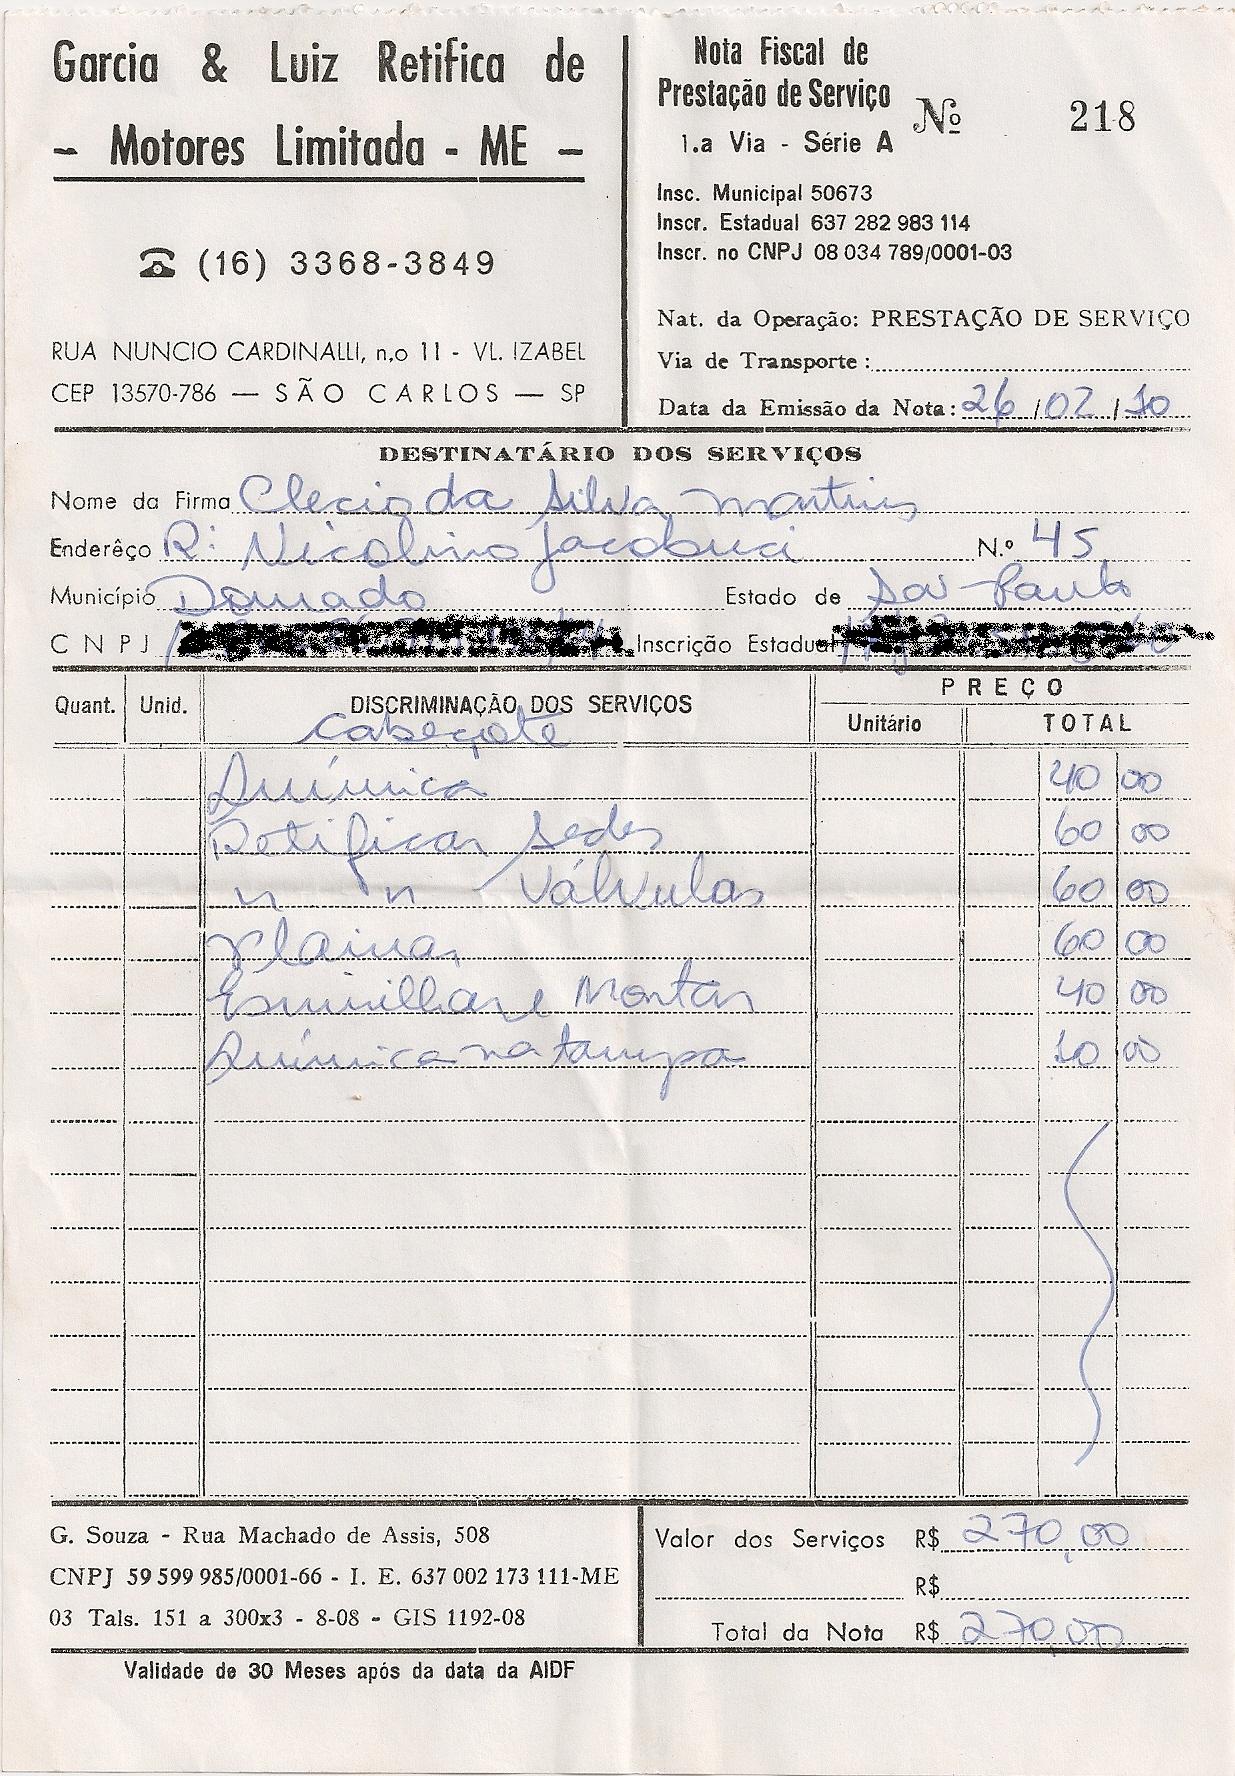 Garcia & Luiz Retifica de
- Motores Limitada - ME -
☎ (16) 3368-3849
RUA NUNCIO CARDINALLI, n.o 11 - VL. IZABEL
CEP 13570-786 — SÃO CARLOS — SP
Nota Fiscal de
Prestação de Serviço
1.a Via - Série A
Nº 218
Insc. Municipal 50673
Inscr. Estadual 637 282 983 114
Inscr. no CNPJ 08 034 789/0001-03
Nat. da Operação: PRESTAÇÃO DE SERVIÇO
Via de Transporte :
Data da Emissão da Nota: 26 / 02 / 10
DESTINATÁRIO DOS SERVIÇOS
Nome da Firma Clecio da Silva Martins
Enderêço R: Nicolino Jacobuci N.º 45
Município Dourado Estado de São Paulo
CNPJ Inscrição Estadual
Quant. Unid. DISCRIMINAÇÃO DOS SERVIÇOS PREÇO
Unitário TOTAL
Cabeçote
Química 40 00
Retificar Sedes 60 00
" " Válvulas 60 00
Plainar 60 00
Esmirilhar e Montar 40 00
Química na tampa 10 00
G. Souza - Rua Machado de Assis, 508
CNPJ 59 599 985/0001-66 - I. E. 637 002 173 111-ME
03 Tals. 151 a 300x3 - 8-08 - GIS 1192-08
Valor dos Serviços R$ 270,00
R$
Total da Nota R$ 270,00
Validade de 30 Meses após da data da AIDF